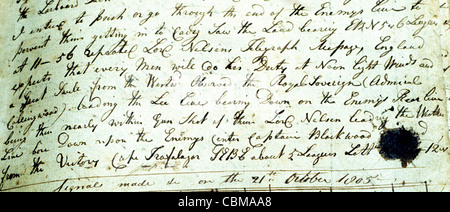 intend to push or go through the end of the Enemys line to
prevent them getting in to Cadiz Saw the Land bearing EBN 5 or 6 Leagues
at 11-56 repeated Lord Nelsons Telegraph Message, England
expects that every Man will do his Duty at Noon Light Winds and
a Great Swell from the Westw Observed the Royal Sovereign (Admiral
Collingwood) leading the Lee line bearing Down on the Enemys Rear line
being then nearly within Gun Shot of them Lord Nelson leading the Weather
line bore down upon the Enemys center Captain Blackwood
from the Victory Cape Trafalgar SEBE about 5 Leagues
Signals made on the 21st October 1805
alamy stock photo
CBMAA8
www.alamy.com